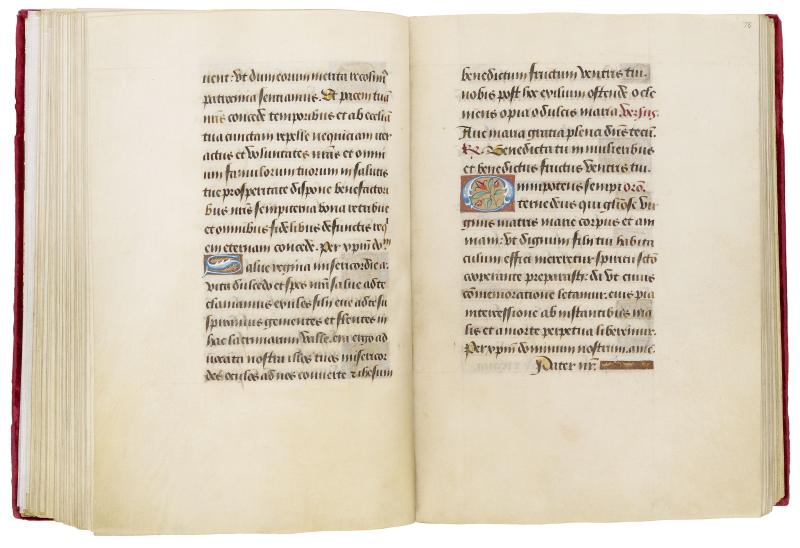 uent: Vt dum eorum merita recolim9
patrocinia sentiamus. Et pacem tuã
nr̃is concede temporibus et ab ecclia
tua cunctam repelle nequiciam iter
actus et Voluntates nr̃as et omni
um famulorum tuorum in salutis
tue prosperitate dispone benefactori
bus nr̃is sempiterna bona retribue
et omnibus fidelibus defunctis req
em eternam concede. Per xpm̃ do.
Salue regina misericordie
Vita dulcedo et spes nr̃a salue ad te
clamamus exules filij eue ad te su
spiramus gementes et flentes in
hac lacrimarum Valle. eia ergo ad
uocata nostra illos tuos misericor
des oculos ad nos conuerte et ihesum
78
benedictum fructum Ventris tui.
nobis post hoc exilium ostende o cle
mens o pia o dulcis maria Versus.
Aue maria gratia plena dñs tecũ.
R. Benedicta tu in mulieribus
et benedictus fructus Ventris tui.
Omnipotens sempi orõ.
terne deus qui gliõse Vir
ginis matris marie corpus et ani
mam: Vt dignum filij tui habita
culum effici mereretur spiritu sctõ
cooperante preparasti: da Vt cuius
cõmemoratione letamur. eius pia
intercessione ab instantibus ma
lis et a morte perpetua liberemur.
Per xpm̃ dominum nostrum. ame.
Pater nr̃.